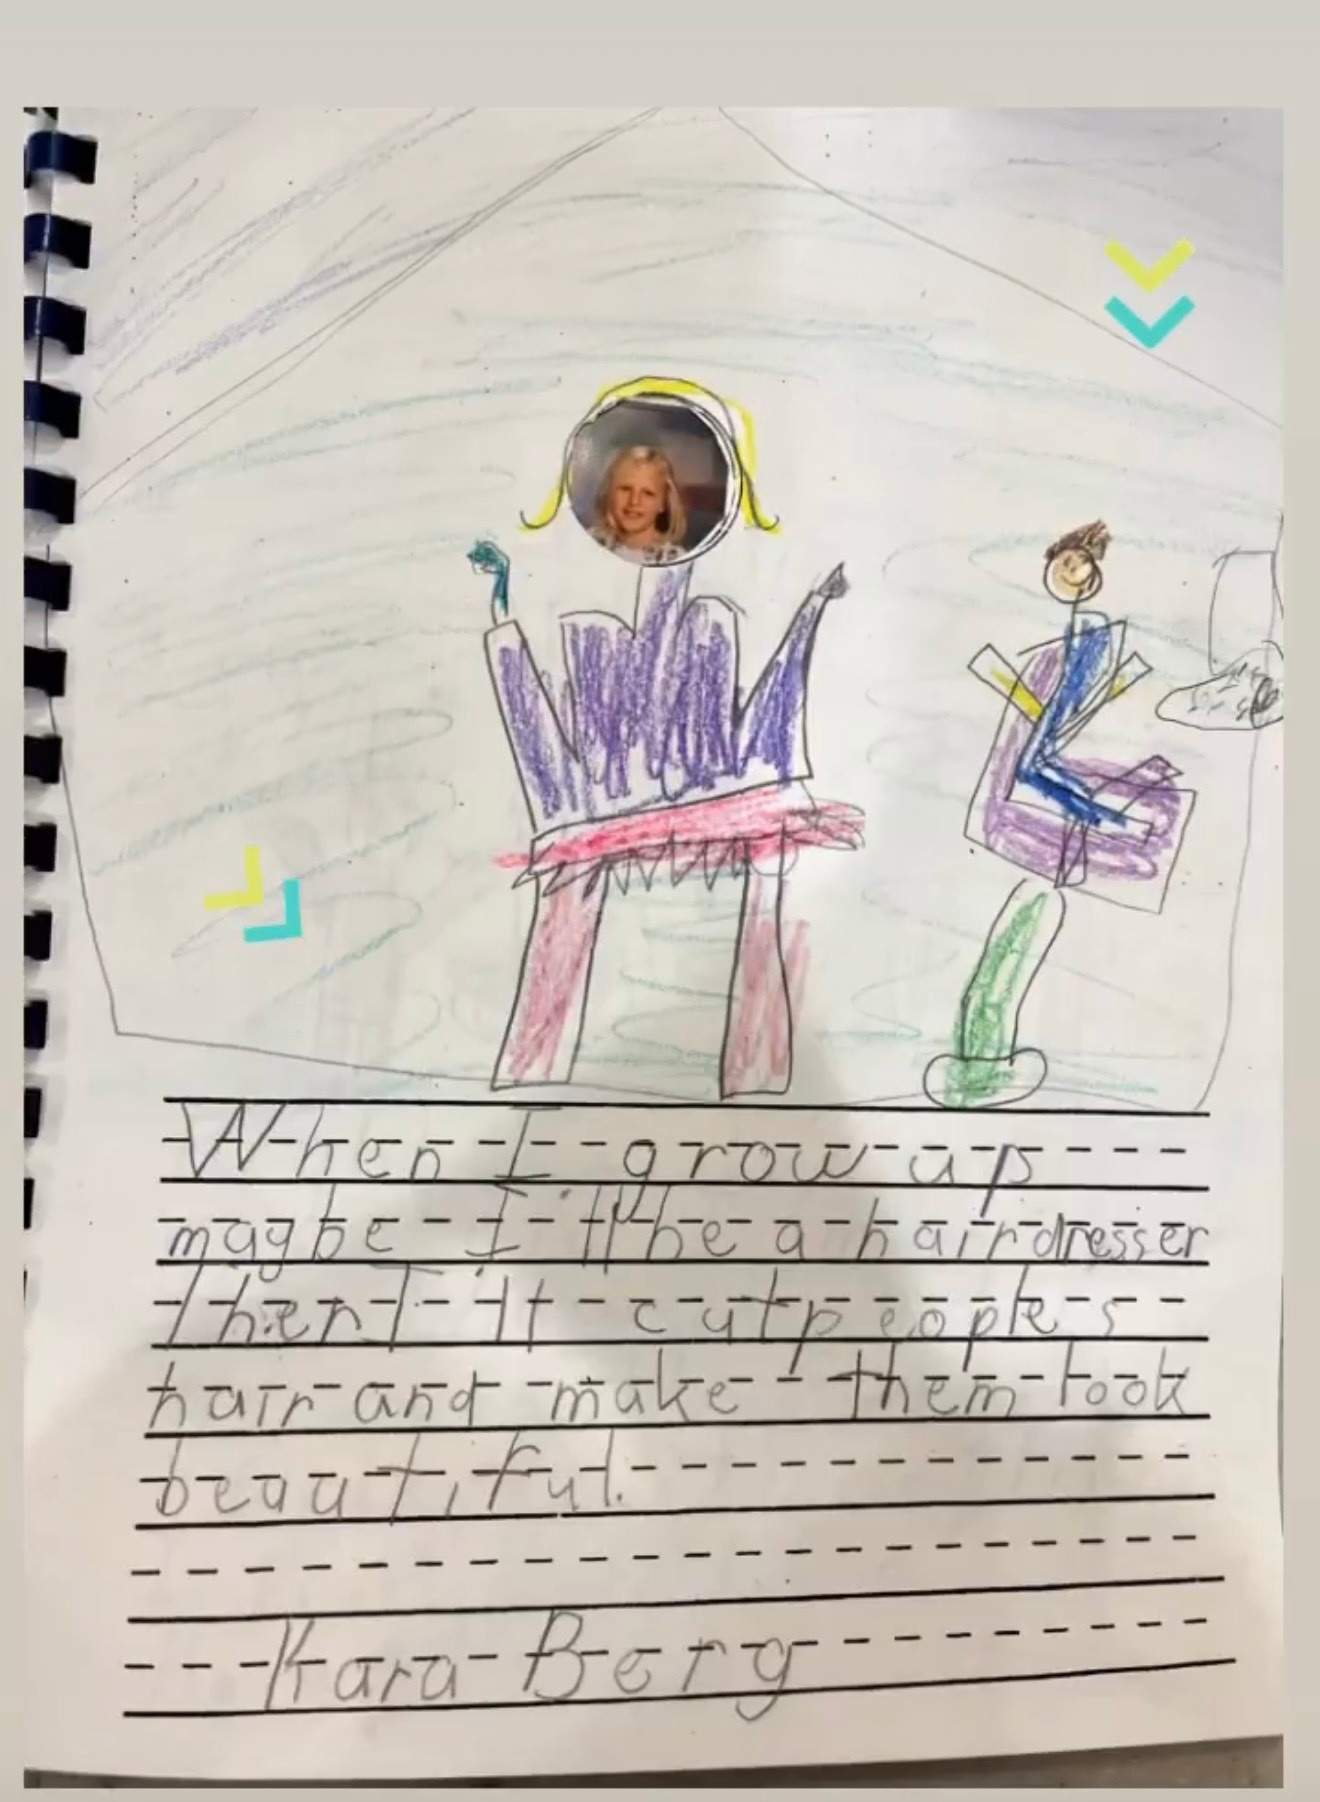 When I grow up
maybe I'll be a hairdresser
then I'll cut peoples
hair and make them look
beautiful.
Kara Berg